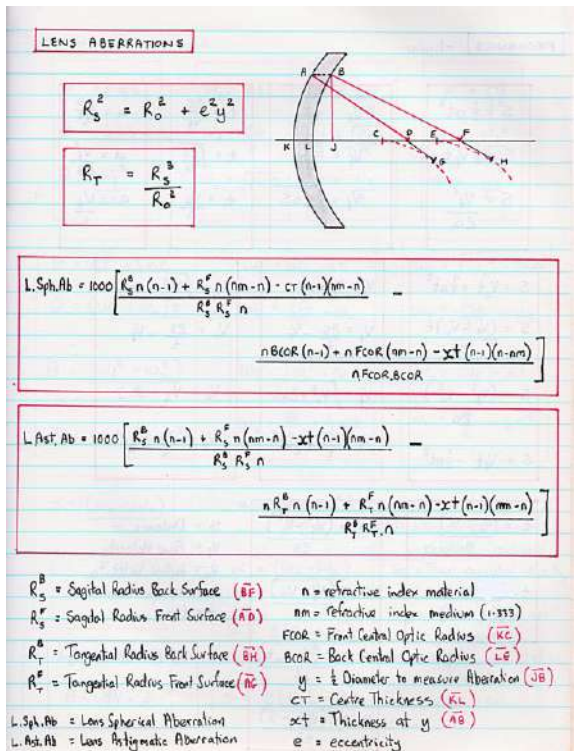 LENS ABERRATIONS
R_S^2 = R_o^2 + e^2y^2
R_T = R_S^3 / R_o^2
A B
K L J C D E F
G H
L.Sph.Ab = 1000 [ R_S^B n (n-1) + R_S^F n (nm-n) - CT (n-1)(nm-n) / R_S^B R_S^F n —
n BCOR (n-1) + n FCOR (nm-n) - xt (n-1)(n-nm) / n FCOR.BCOR ]
L.Ast.Ab = 1000 [ R_S^B n (n-1) + R_S^F n (nm-n) - xt (n-1)(nm-n) / R_S^B R_S^F n —
n R_T^B n (n-1) + R_T^F n (nm-n) - xt (n-1)(nm-n) / R_T^B R_T^F. n ]
R_S^B = Sagital Radius Back Surface (BF)
R_S^F = Sagital Radius Front Surface (AD)
R_T^B = Tangential Radius Back Surface (BH)
R_T^F = Tangential Radius Front Surface (AG)
L.Sph.Ab = Lens Spherical Aberration
L.Ast.Ab = Lens Astigmatic Aberration
n = refractive index material
nm = refractive index medium (1.333)
FCOR = Front Central Optic Radius (KC)
BCOR = Back Central Optic Radius (LE)
y = ½ Diameter to measure Aberration (JB)
CT = Centre Thickness (KL)
xt = Thickness at y (AB)
e = eccentricity